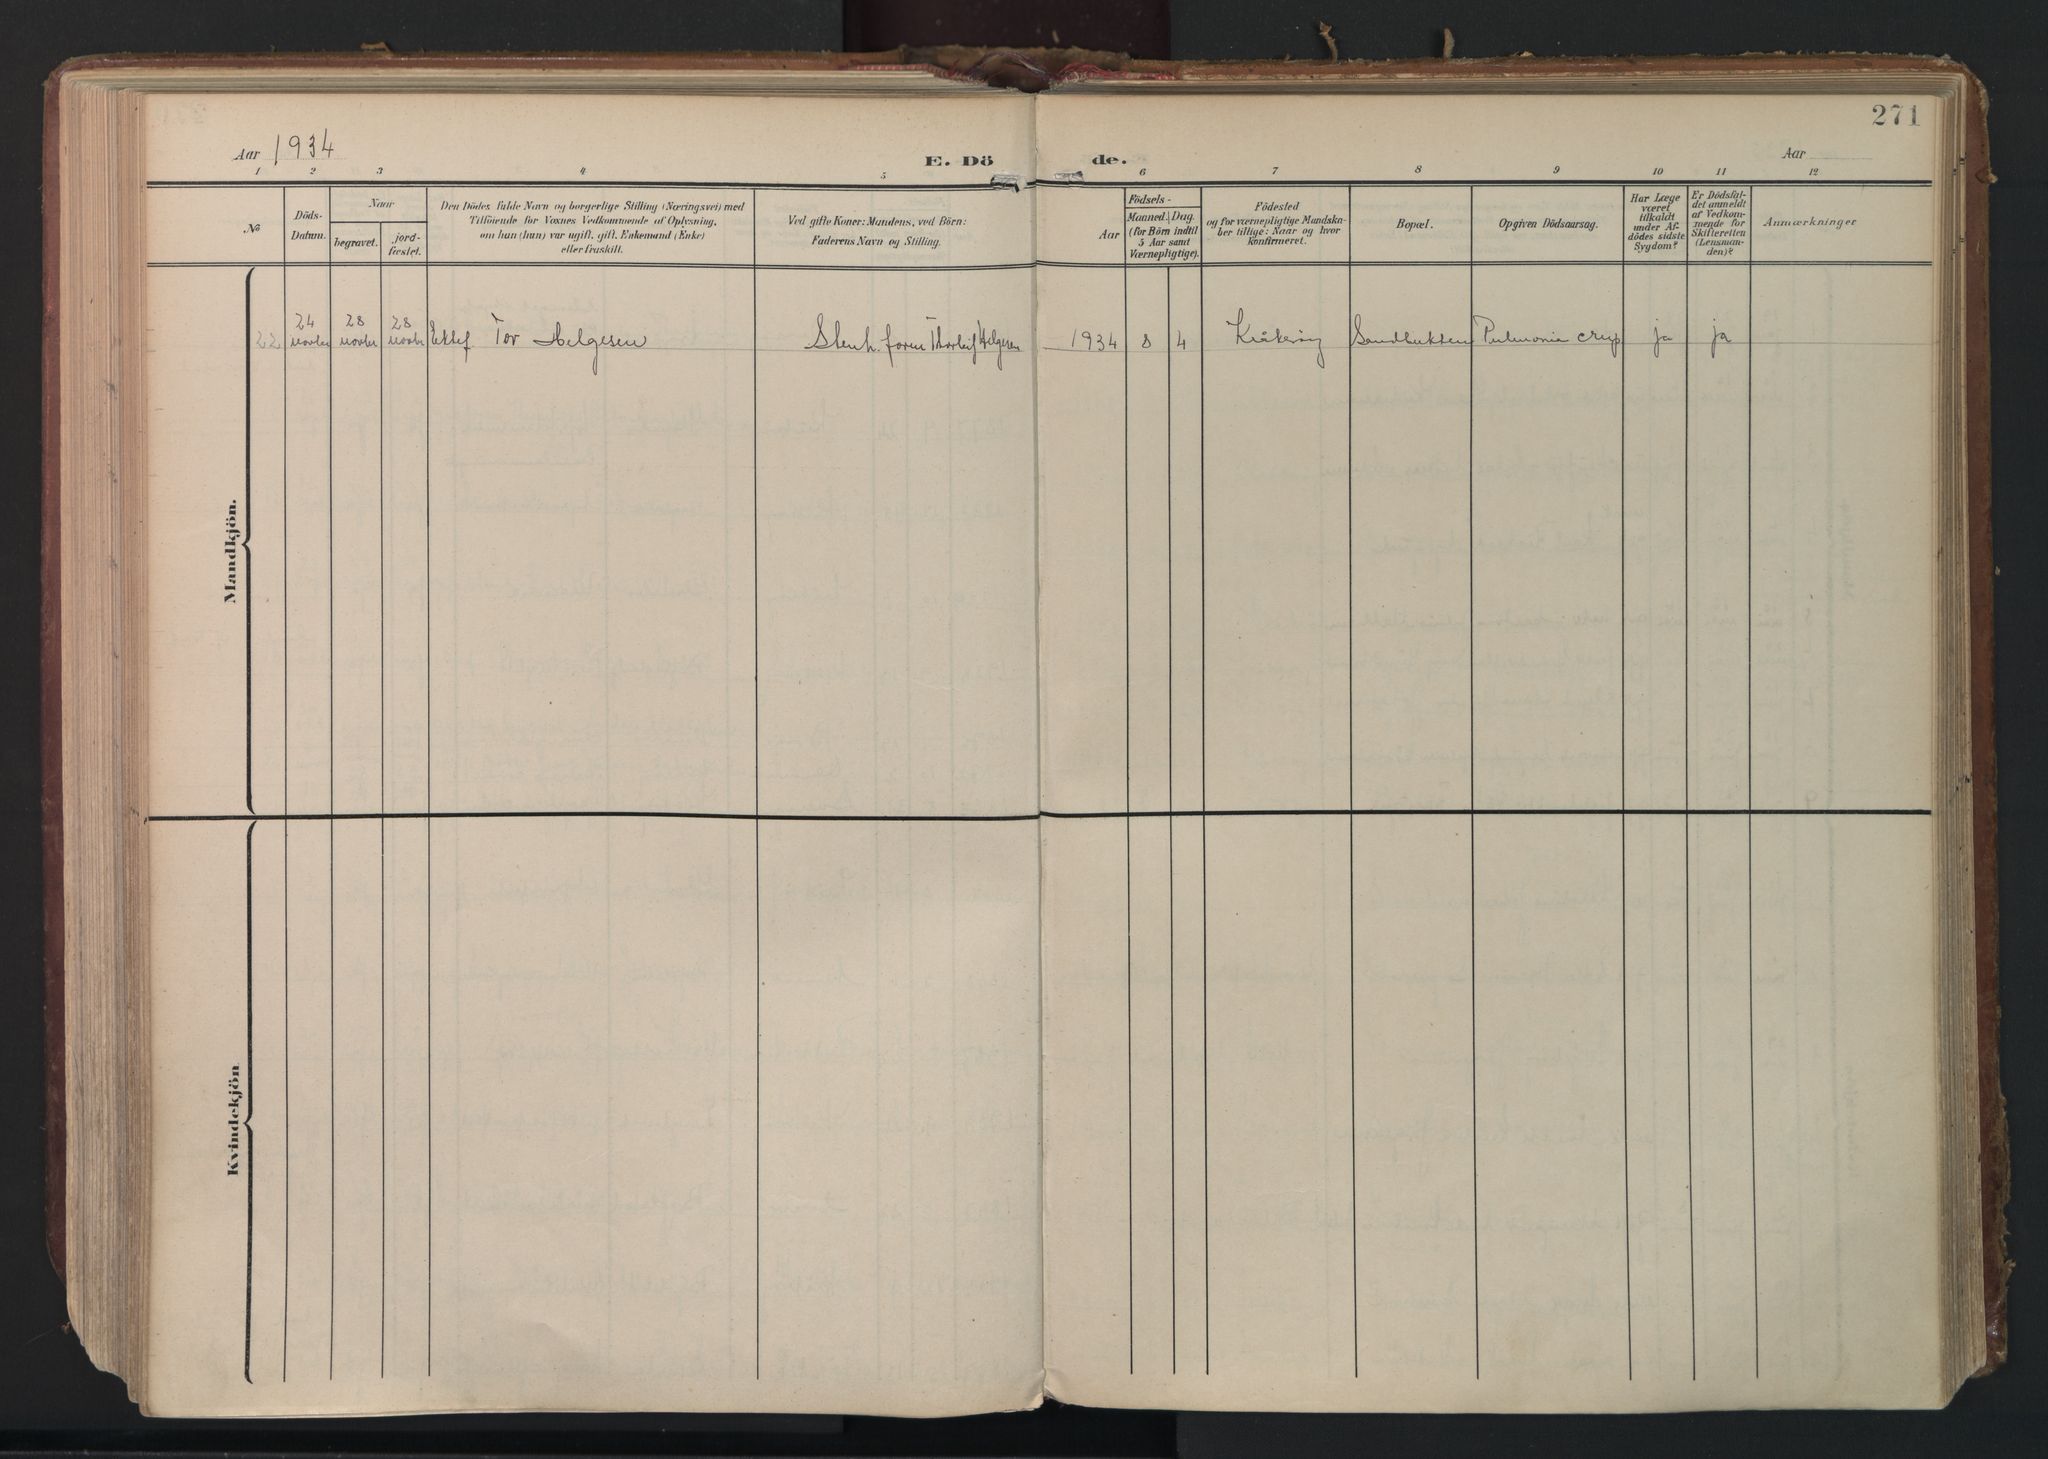 271
Aar 1934
E. Dö de.
Aar
1 2 3 4 5 6 7 8 9 10 11 12
No
Döds-
Datum.
Naar
begravet.
jord-
fæstet.
Den Dödes fulde Navn og borgerlige Stilling (Næringsvei) med
Tilföiende for Voxnes Vedkommende af Oplysning,
om han (hun) var ugift, gift, Enkemand (Enke)
eller fraskilt.
Ved gifte Koner: Mandens, ved Börn:
Faderens Navn og Stilling.
Födsels-
Aar
Maaned. Dag.
(for Börn indtil
5 Aar samt
Værnepligtige).
Födested
og for værnepligtige Mandska-
ber tillige: Naar og hvor
Konfirmeret.
Bopæl.
Opgiven Dödsaarsag.
Har Læge
været
tilkaldt
under Af-
dödes sidste
Sygdom?
Er Dödsfal-
det anmeldt
af Vedkom-
mende for
Skifteretten
(Lensman-
den)?
Anmærkninger
Mandkjön.
24 28 28
22 novbr novbr novbr Ektef Tor Helgesen Stenh. foren Thorleif Helgesen 1934 8 4 Kråkerøy Sandbukten Pulmonia crup ja ja
Kvindekjön